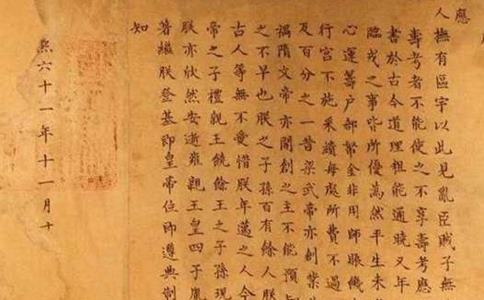 應
人撫有區宇以此見亂臣賊子無
壽考者不能使之不享壽考應
書於古今道理粗能通曉又年
臨戎之事皆所優為然平生未
心運籌戶部帑金非用師賑饑
行宮不施采繢每處所費不過
及百分之一昔梁武帝亦創業
禍隋文帝亦開創之主不能預
之不早也朕之子孫百有餘人朕
古人等無不愛惜朕年邁之人今
帝之子禮親王饒餘王之子孫現
朕亦欣然安逝雍親王皇四子胤
著繼朕登基即皇帝位即遵典制
知
熙六十一年十一月十